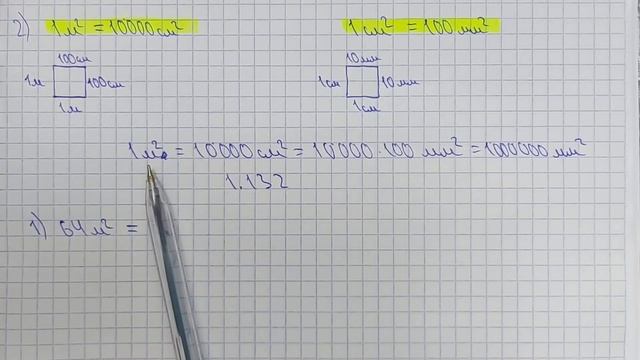 2) 1 м² = 10000 см² 1 см² = 100 мм²
100 см 10 мм
1 м 100 см 1 см 10 мм
1 м 1 см
1 м² = 10000 см² = 10000 · 100 мм² = 1000000 мм²
1.132
1) 64 м² =